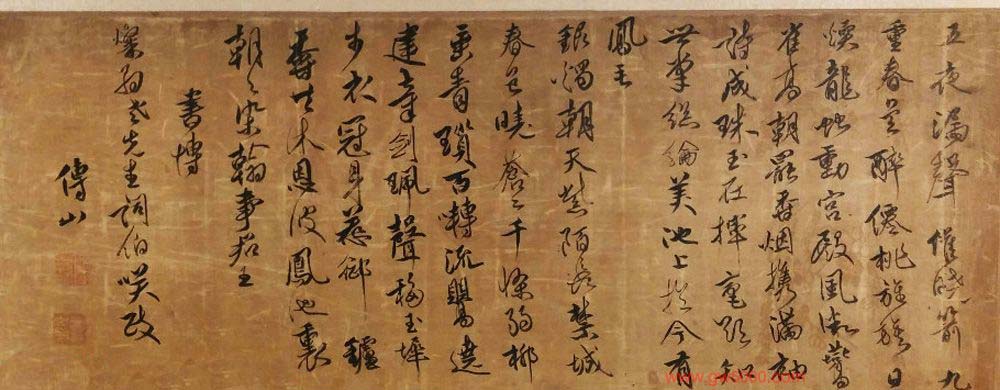 五夜漏聲催曉箭九
重春色醉僊桃旌旗日
煖龍蛇動宮殿風微鷰
雀高朝罷香烟攜滿袖
詩成珠玉在揮毫欲知
世掌絲綸美池上於今有
鳳毛
銀燭朝天紫陌長禁城
春色曉蒼〻千條弱柳
垂青瑣百囀流鶯遶
建章劍珮聲移玉墀
步衣冠身惹御鑪
香共沐恩波鳳池裏
朝〻染翰事君王
書博
老先生詞伯咲政
傅山